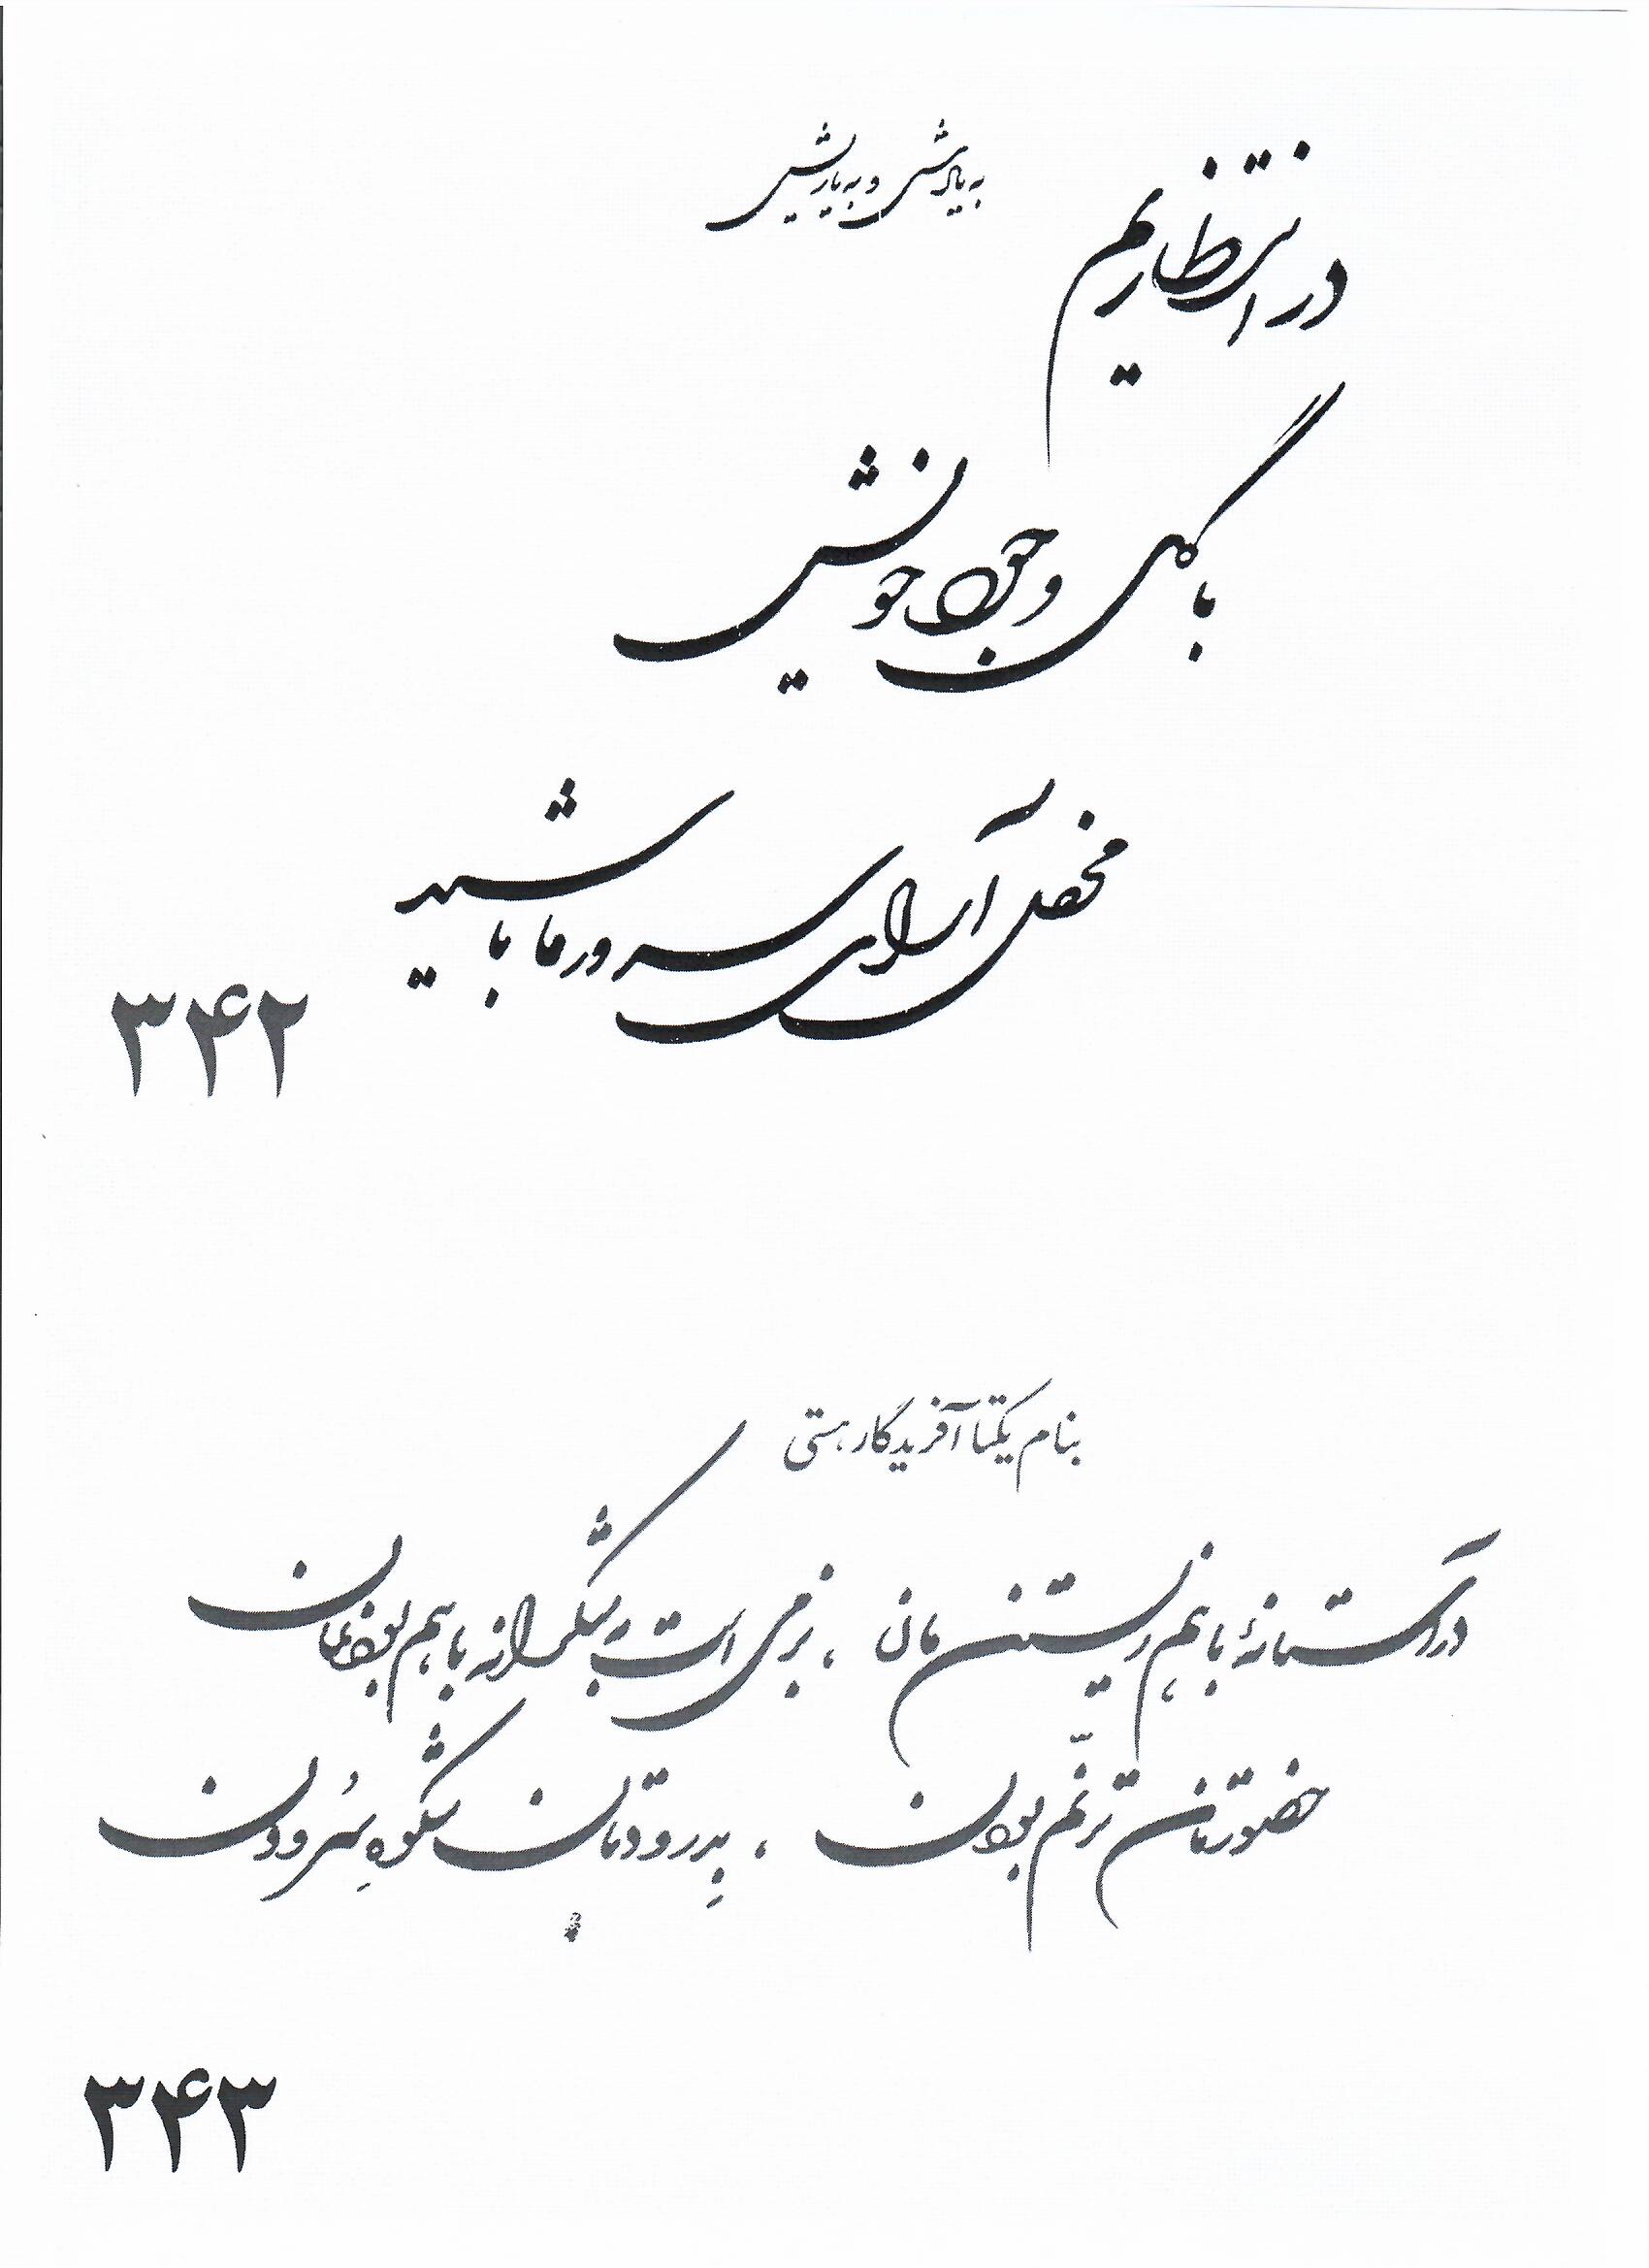 به یادش و به یاریش
در انتظاریم
با گلی و جوان جوانیش
محفل آرای سرور ما باشید
۳۴۲
بنام یکتا آفریدگار هستی
در آستانهٔ با هم زیستن مان ، بزمی است به شکرانه با هم بودنمان
حضورتان ترنّم بودن ، بِدرودتان شکوهِ سُرودن
۳۴۳